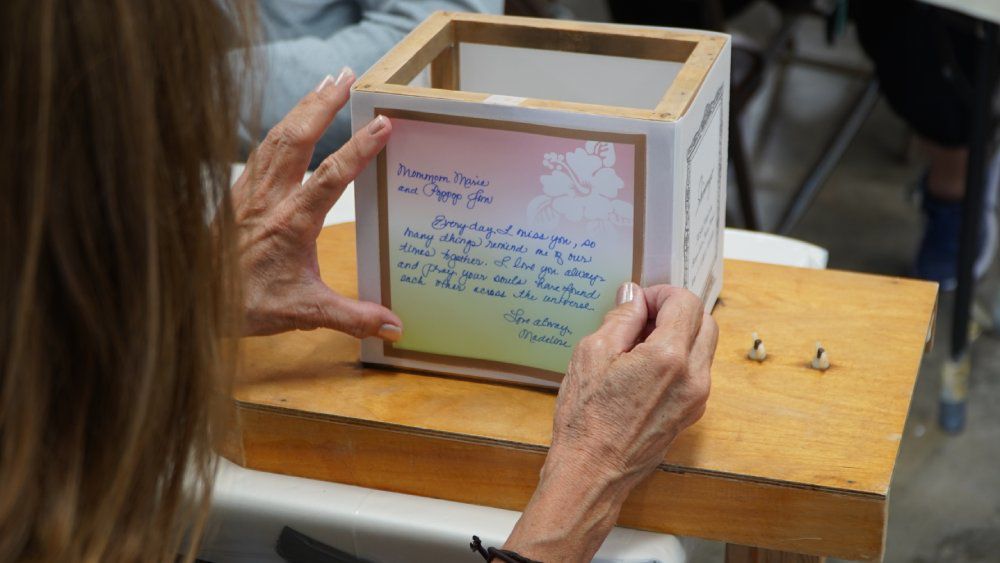 Mommom Marie
and Poppop Jim
Everyday I miss you, so
many things remind me of our
times together. I love you always
and pray your souls have found
each other across the universe.
Love always,
Madelise